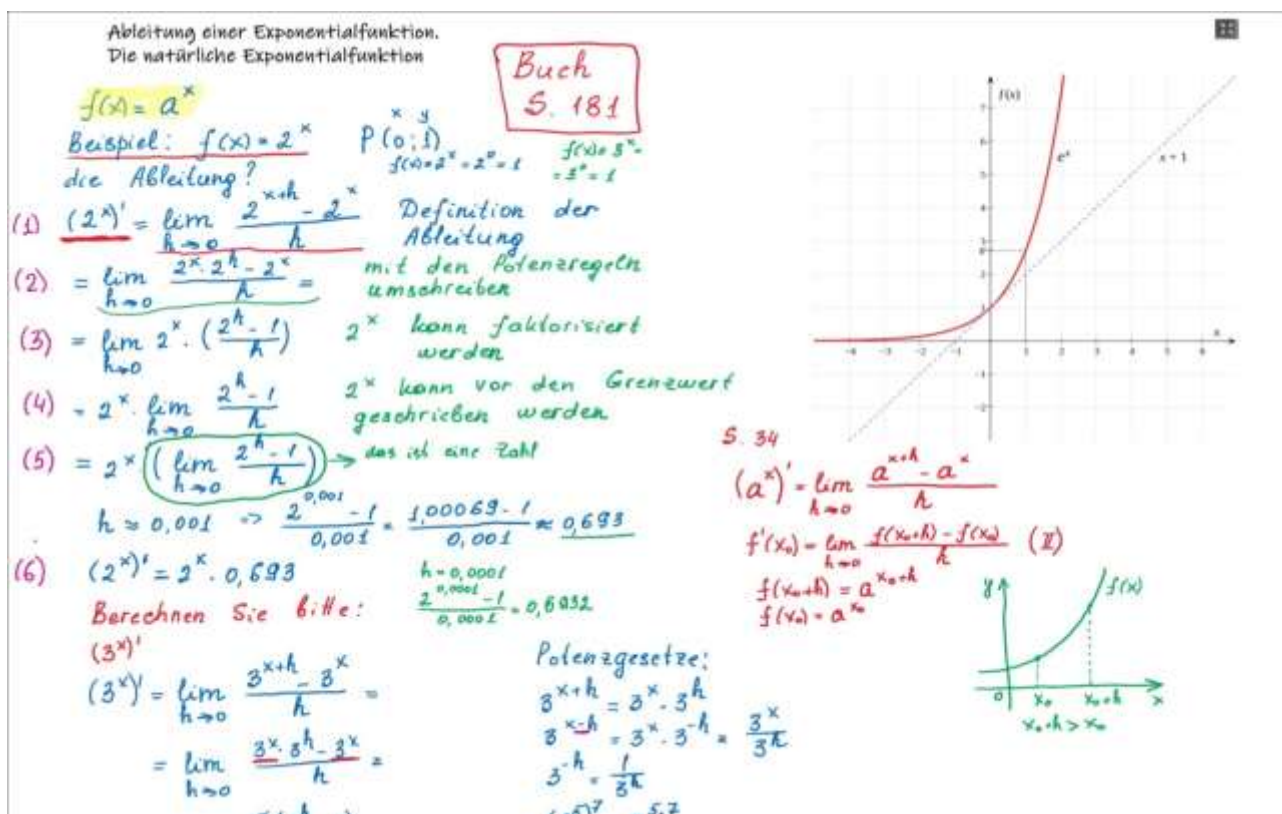 Ableitung einer Exponentialfunktion.
Die natürliche Exponentialfunktion
Buch
S. 181
f(x) = a^x
Beispiel: f(x) = 2^x
x y
P(0;1)
f(x) = 2^x = 2^0 = 1
f(x) = 3^x =
= 3^0 = 1
die Ableitung?
(1) (2^x)' = lim h→0 (2^(x+h) - 2^x)/h Definition der Ableitung
(2) = lim h→0 (2^x · 2^h - 2^x)/h = mit den Potenzregeln umschreiben
(3) = lim h→0 2^x · ((2^h - 1)/h) 2^x kann faktorisiert werden
(4) = 2^x · lim h→0 (2^h - 1)/h 2^x kann vor den Grenzwert geschrieben werden
(5) = 2^x (lim h→0 (2^h - 1)/h) → das ist eine Zahl
h ≈ 0,001 => (2^0,001 - 1)/0,001 = (1,00069 - 1)/0,001 ≈ 0,693
(6) (2^x)' = 2^x · 0,693
h = 0,0001
(2^0,0001 - 1)/0,0001 = 0,6932
Berechnen Sie bitte:
(3^x)'
(3^x)' = lim h→0 (3^(x+h) - 3^x)/h =
= lim h→0 (3^x · 3^h - 3^x)/h =
Potenzgesetze:
3^(x+h) = 3^x · 3^h
3^(x-h) = 3^x · 3^(-h) = 3^x/3^h
3^(-h) = 1/3^h
f(x)
e^x
x + 1
x
7
6
5
4
3
e
2
1
-1
-2
-4 -3 -2 -1 0 1 2 3 4 5 6
S. 34
(a^x)' = lim h→0 (a^(x+h) - a^x)/h
f'(x₀) = lim h→0 (f(x₀+h) - f(x₀))/h (II)
f(x₀+h) = a^(x₀+h)
f(x₀) = a^(x₀)
y f(x)
0 x₀ x₀+h x
x₀+h > x₀